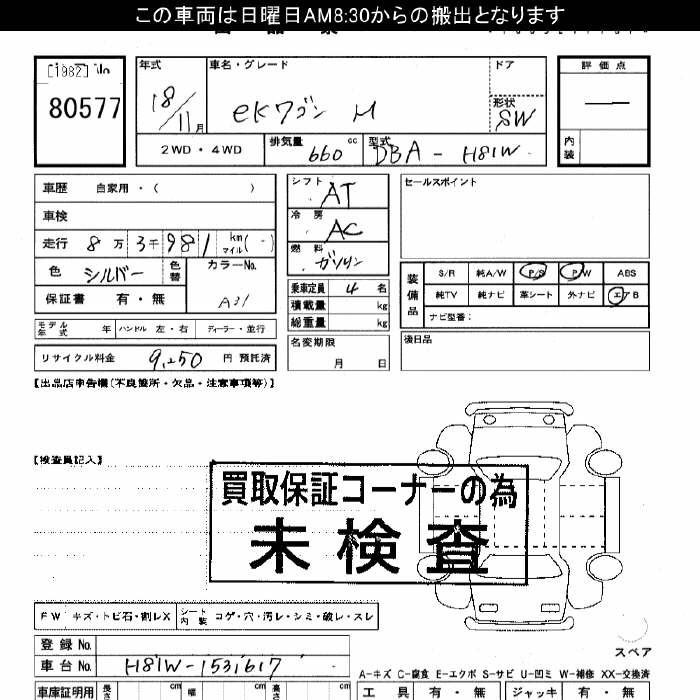 この車両は日曜日AM8:30からの搬出となります
[1982] No
80577
年式 18/11月
車名・グレード eKワゴン M
ドア
形状 SW
評価点
内装
2WD・4WD
排気量 660 cc
型式 DBA-H81W
車歴 自家用・( )
車検
走行 8万3千981 km マイル(-)
色 シルバー 色替
カラーNo. A31
保証書 有・無
シフト AT
冷房 AC
燃料 ガソリン
乗車定員 4 名
積載量 kg
総重量 kg
セールスポイント
装備品
S/R 純A/W P/S P/W ABS
純TV 純ナビ 革シート 外ナビ エアB
ナビ型番:
モデル年式 年 ハンドル 左・右 ディーラー・並行
リサイクル料金 9,250 円 預託済
名変期限
月 日
後日品
【出品店申告欄(不良箇所・欠品・注意事項等)】
【検査員記入】
買取保証コーナーの為
未検査
FW キズ・トビ石・割レX シート内装 コゲ・穴・汚レ・シミ・破レ・スレ
登録No.
車台No. H81W-1531617
スペア
A-キズ C-腐食 E-エクボ S-サビ U-凹ミ W-補修 XX-交換済
車庫証明用 長さ cm 幅 cm 高さ cm
工具 有・無 ジャッキ 有・無